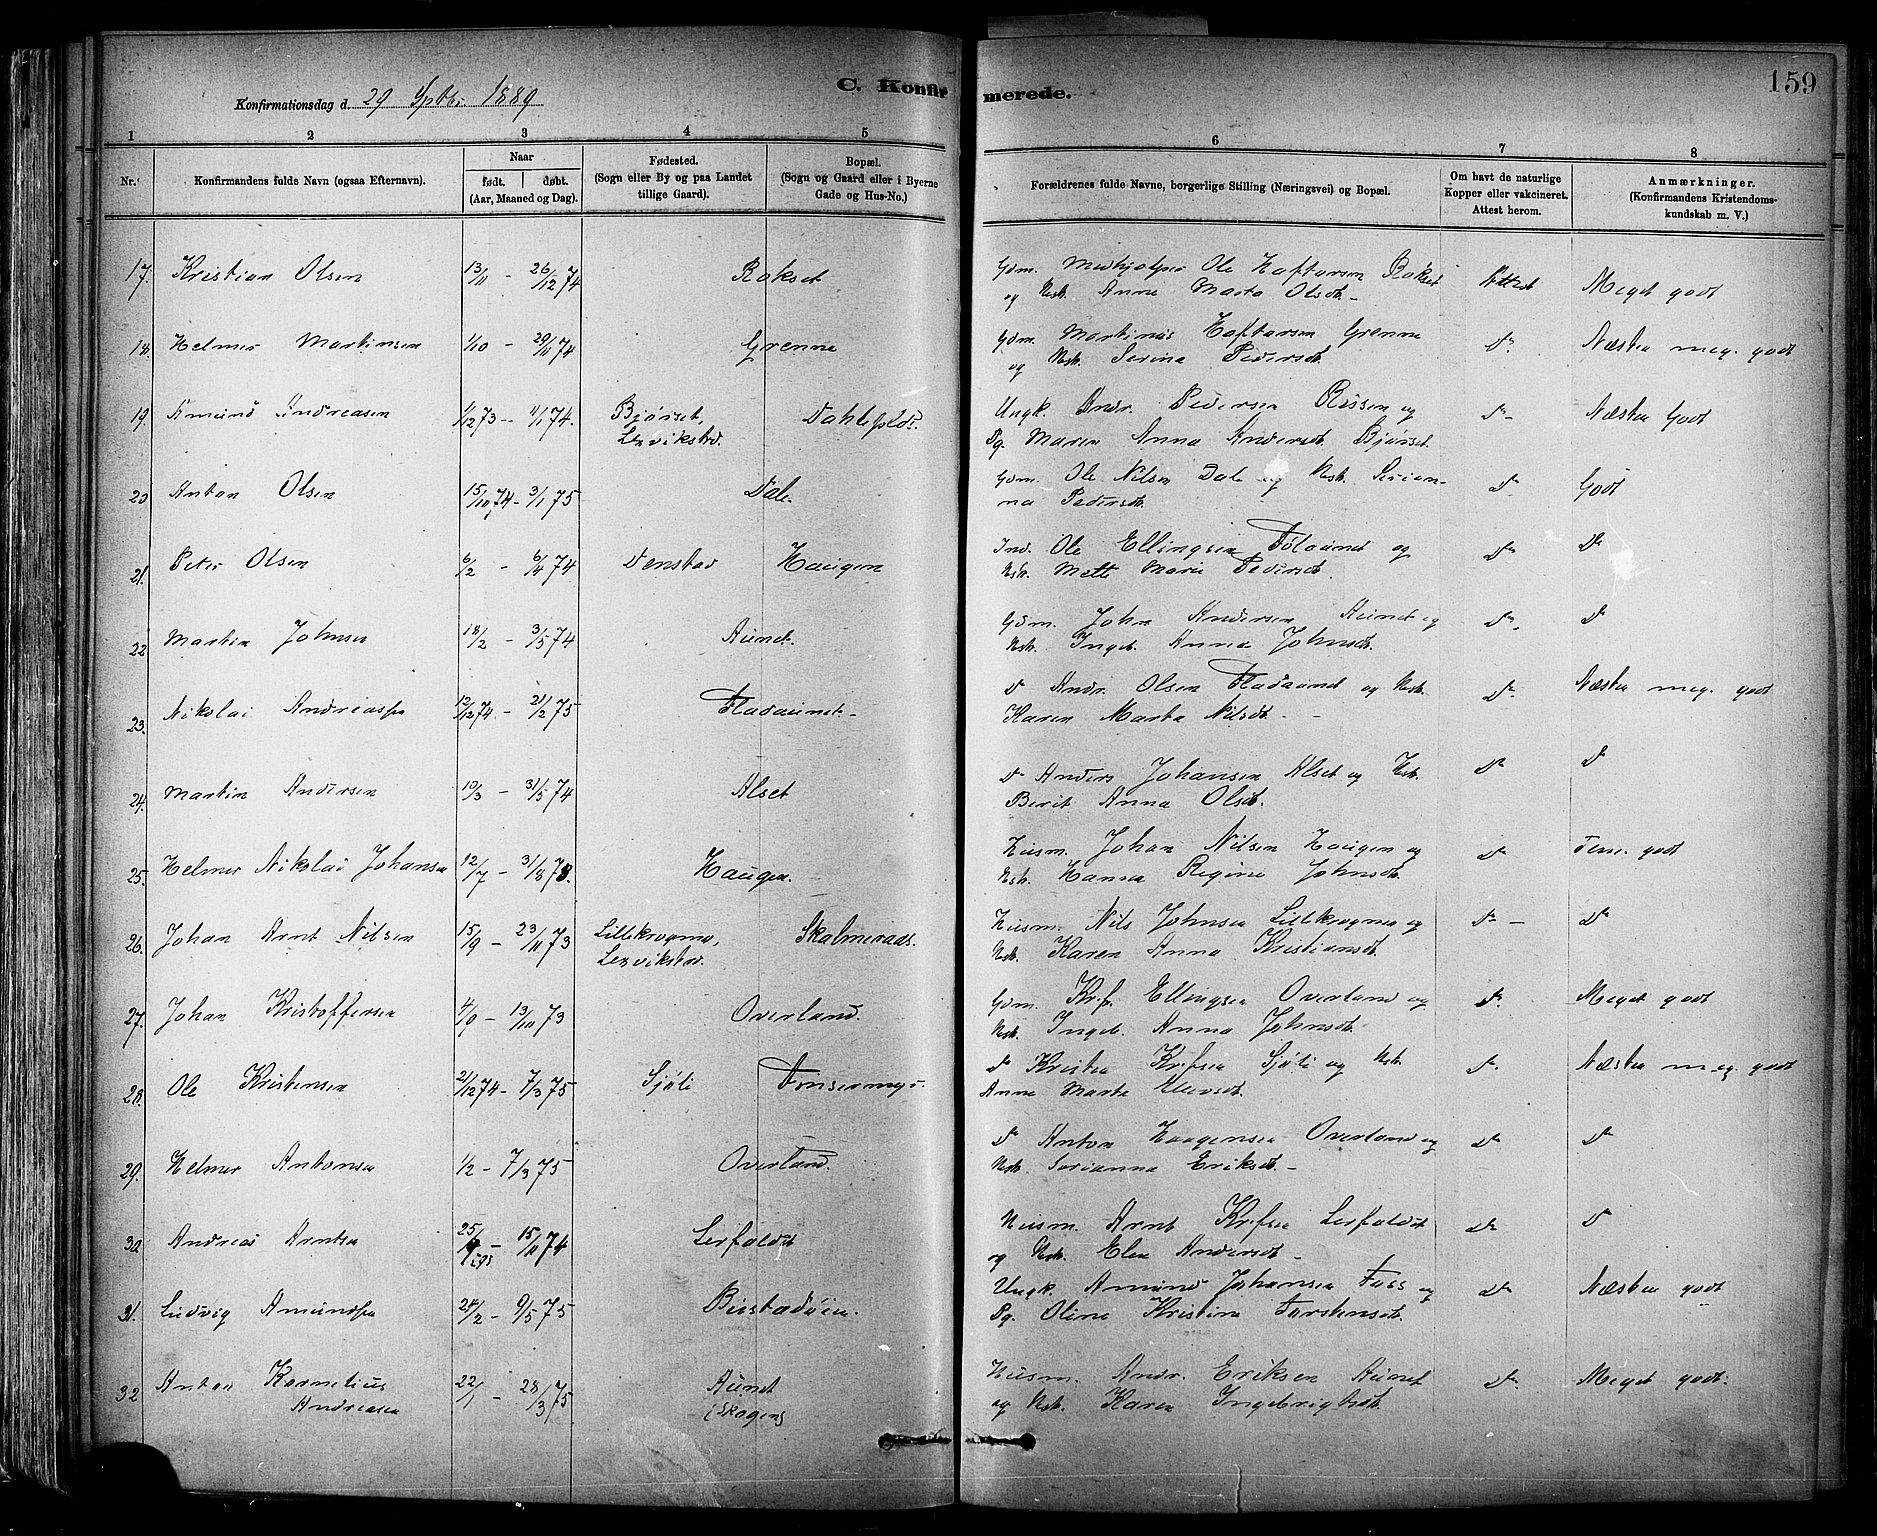 C. Konfirmerede.
159
Konfirmationsdag d. 29 Septbr. 1889
1 2 3 4 5 6 7 8
Nr. Konfirmandens fulde Navn (ogsaa Efternavn). Naar født. døbt. (Aar, Maaned og Dag). Fødested. (Sogn eller By og paa Landet tillige Gaard). Bopæl. (Sogn og Gaard eller i Byerne Gade og Hus-No.) Forældrenes fulde Navne, borgerlige Stilling (Næringsvei) og Bopæl. Om havt de naturlige Kopper eller vakcineret. Attest herom. Anmærkninger. (Konfirmandens Kristendomskundskab m. V.)
17. Kristian Olsen 13/11 - 26/12 74 Rokset Gdm. Medhjælper Ole Haftorsen Rokset Attest Meget godt
og Hstr. Anne Marta Olsdtr. -
18. Helmer Martinsen 1/10 - 29/11 74 Grenne Gdm. Martinus Haftorsen Grenne Do. Næsten meg. godt
og Hstr. Serina Pedersdtr.
19. Amund Andreasen 1/12 73 - 11/1 74. Bjørset, Lexvikstrd. Dahlefaldt. Ungk. Andr. Pedersen Rissen og Do - Næsten Godt
Pg. Maren Anna Andersdt. Bjørset.
20 Anton Olsen 15/10 74 - 3/1 75 Dale Gdm. Ole Nilsen Dale og Hstr. Serian- Do. Godt
na Pedersdtr.
21. Peter Olsen 6/2 - 6/4 74 Denstad Haugen Ind. Ole Ellingsen og Do. Do
Hstr. Mette Marie Pedersdt.
22 Martin Johnsen 18/2 - 3/5 74 Aunet. Gdm. John Andersen Aunet og Do. Do
Hstr. Ingeb. Anna Johnsdtr.
23. Nikolai Andreassen 12/12 74. - 21/2 75 Fladaunet - Do Andr. Olsen Fladaunet og Hstr. Do - Næsten meg. godt
Karen Marta Nilsdt. -
24. Martin Andersen 10/3 - 31/5 74 Alset Do Anders Johansen Alset og Hstr. Do Do
Berit Anna Olsdt.
25. Helmer Nikolai Johansen 12/7 - 31/8 73. Haugen. Husm. Johan Nilsen Haugen og Do Tem. godt
Hstr. Hanna Regine Johnsdtr.
26. Johan Arnt Nilsen 15/9 - 23/11 73 Lillekrogmo, Lexvikstrd. Husm. Nils Johnsen og Do - Do
Hstr. Karen Anna Kristiansdt.
27. Johan Kristoffersen 4/9 - 13/10 73 Overland. Gdm. Krf. Ellingsen Overland og Do. Meget godt
Hstr. Ingeb. Anna Johnsdtr.
28. Ole Kristensen 21/12 74 - 7/3 75 Sjøli Do Kristen Krfsen Sjøli og Hstr. Do. Næsten meg godt
Anne Marta
29. Helmer Antonsen 1/2 - 7/3 75 Overland. Do Anton Haagensen Overland og Do Do
Hstr. Serianna Eriksdt. -
30. Andreas Arntsen 25/9 - 15/11 74 Lerfaldet Husm. Arnt Krfsen Lerfaldet Do Do
og Hstr. Elen Andersdt. -
31. Ludvig Amundsen 24/2 - 9/5 75. Ungk. Amund Johansen Foss og Do. Næsten godt
Pg. Oline Kristine Torstensdt.
32 Anton Kornelius 22/1 - 28/3 75 Aunet Husm. Andr. Eriksen Aunet Do. Meget godt.
Andreasen (Skogen) og Hstr. Karen Ingebrigtsdt.